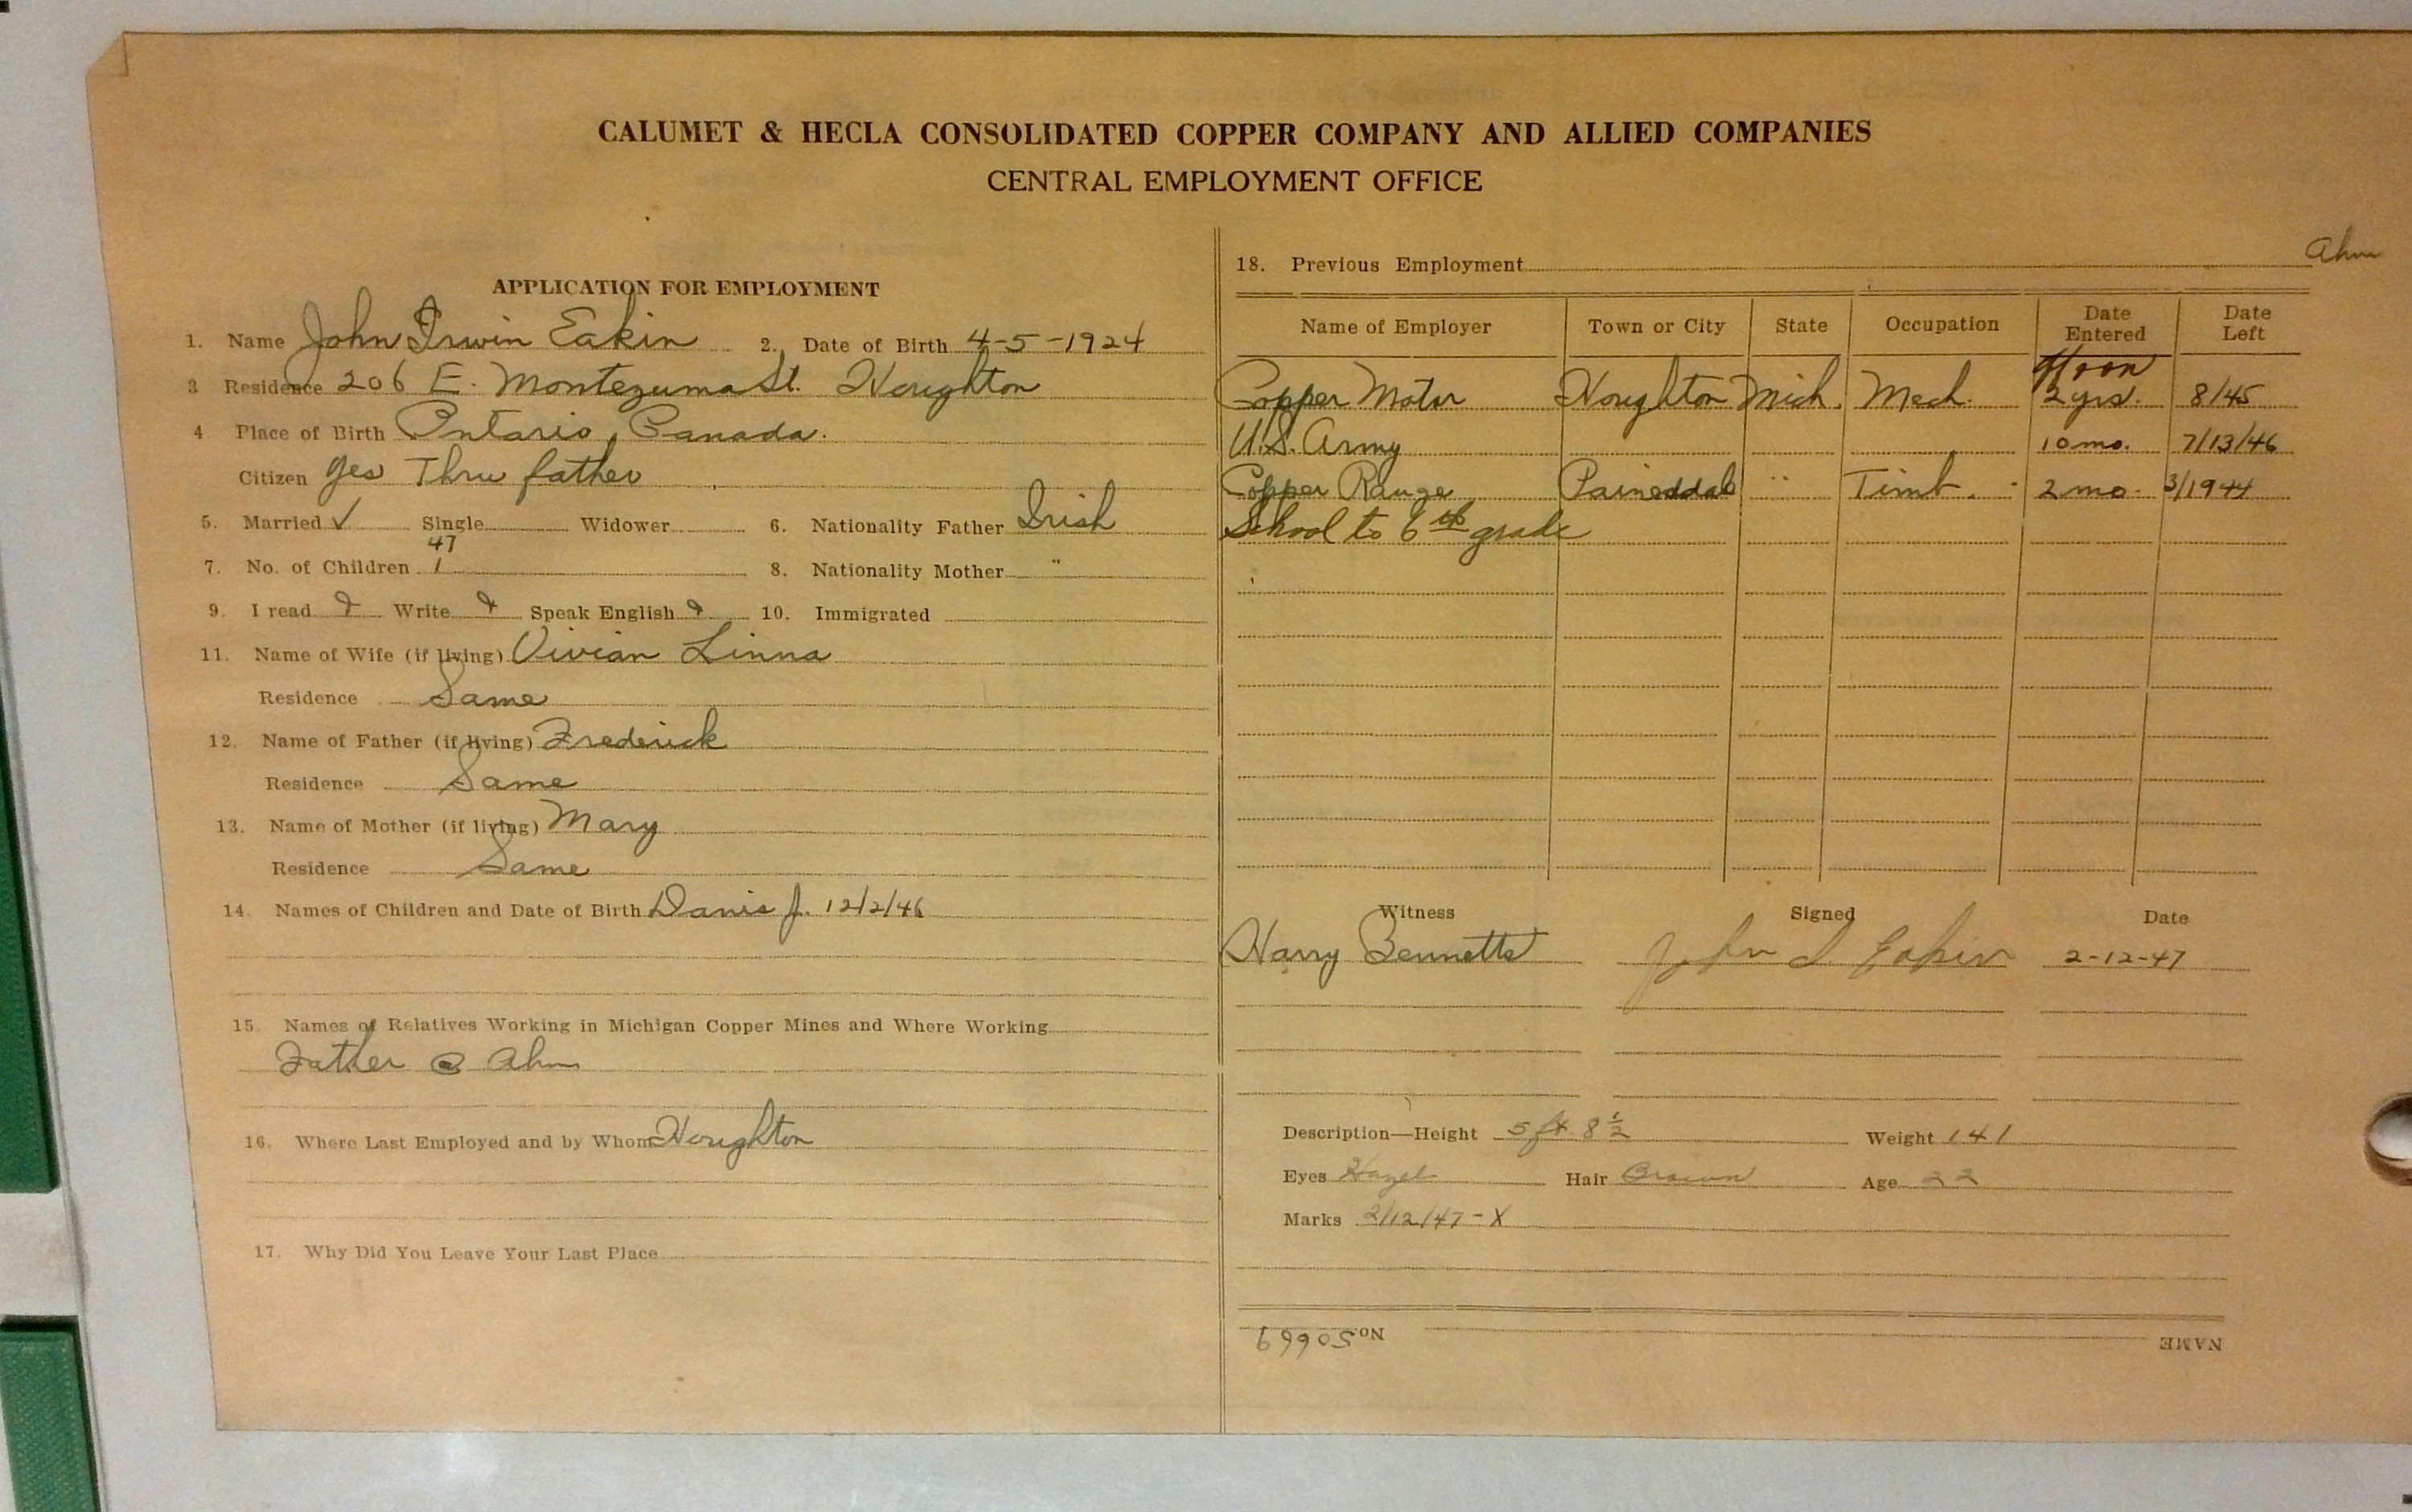 CALUMET & HECLA CONSOLIDATED COPPER COMPANY AND ALLIED COMPANIES
CENTRAL EMPLOYMENT OFFICE
APPLICATION FOR EMPLOYMENT
1. Name John Irwin Eakin 2. Date of Birth 4-5-1924
3 Residence 206 E. Montezuma St. Houghton
4. Place of Birth Ontario, Canada.
Citizen Yes Thru father
5. Married ✓ Single Widower 6. Nationality Father Irish
47
7. No. of Children 1 8. Nationality Mother "
9. I read Write Speak English 10. Immigrated
11. Name of Wife (if living) Vivian Linna
Residence Same
12. Name of Father (if living) Frederick
Residence Same
13. Name of Mother (if living) Mary
Residence Same
14. Names of Children and Date of Birth J. 12/2/46
15. Names of Relatives Working in Michigan Copper Mines and Where Working
Father @ Ahm
16. Where Last Employed and by Whom Houghton
17. Why Did You Leave Your Last Place
Ahm
18. Previous Employment
Name of Employer Town or City State Occupation Date Entered Date Left
Copper Motor Houghton Mich. Mech. 2 yrs. 8/45
U.S. Army 10 mo. 7/13/46
Copper Range Painesdale " Timb. 2 mo. 3/1944
School to 6th grade
Witness Signed Date
Harry Bennetts John I. Eakin 2-12-47
Description—Height 5 ft. 8 1/2 Weight 141
Eyes Hazel Hair Brown Age 22
Marks 2/12/47 - X
NAME No. 50669